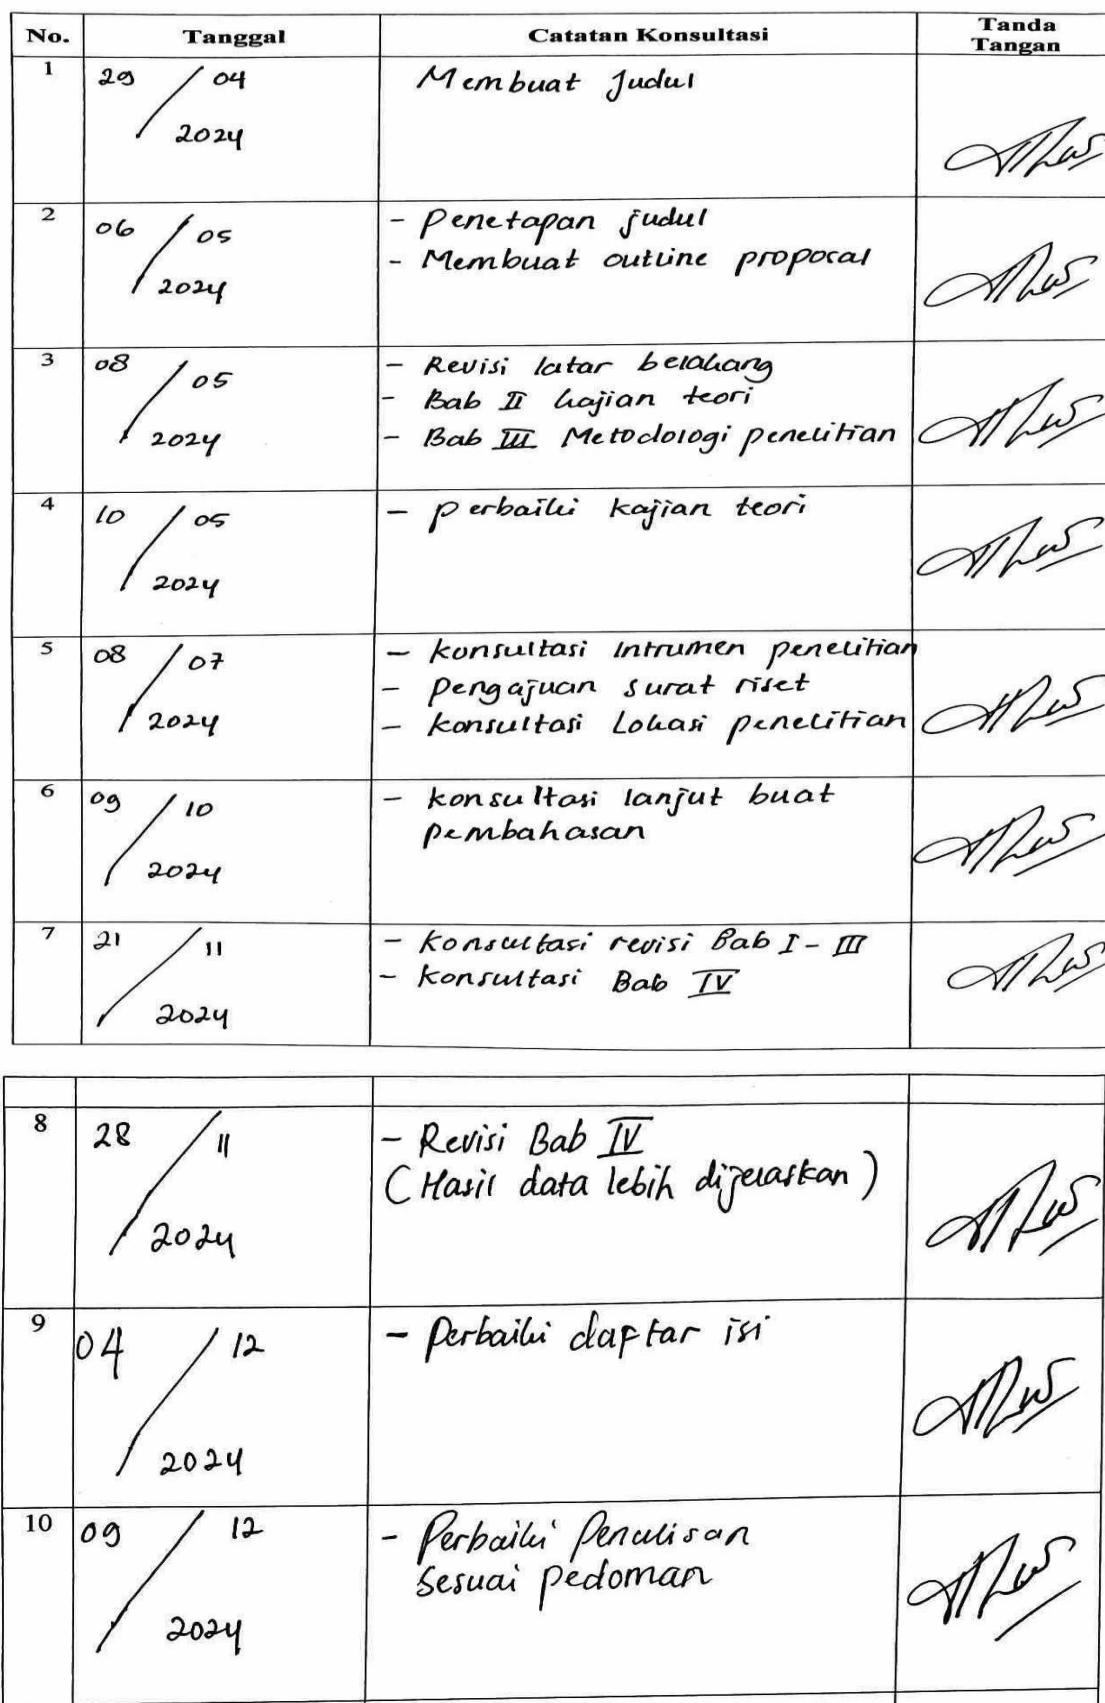 No. Tanggal Catatan Konsultasi Tanda Tangan
1 29 / 04 Membuat Judul
2024
2 06 / 05 - Penetapan judul
2024 - Membuat outline proposal
3 08 / 05 - Revisi latar belakang
- Bab II kajian teori
2024 - Bab III Metodologi penelitian
4 10 / 05 - perbaiki kajian teori
2024
5 08 / 07 - konsultasi Intrumen penelitian
- pengajuan surat riset
2024 - konsultasi Lokasi penelitian
6 09 / 10 - konsultasi lanjut buat
pembahasan
2024
7 21 / 11 - Konsultasi revisi Bab I - III
- Konsultasi Bab IV
2024
8 28 / 11 - Revisi Bab IV
(Hasil data lebih dijelaskan)
2024
9 04 / 12 - Perbaiki daftar isi
2024
10 09 / 12 - Perbaiki Penulisan
sesuai pedoman
2024